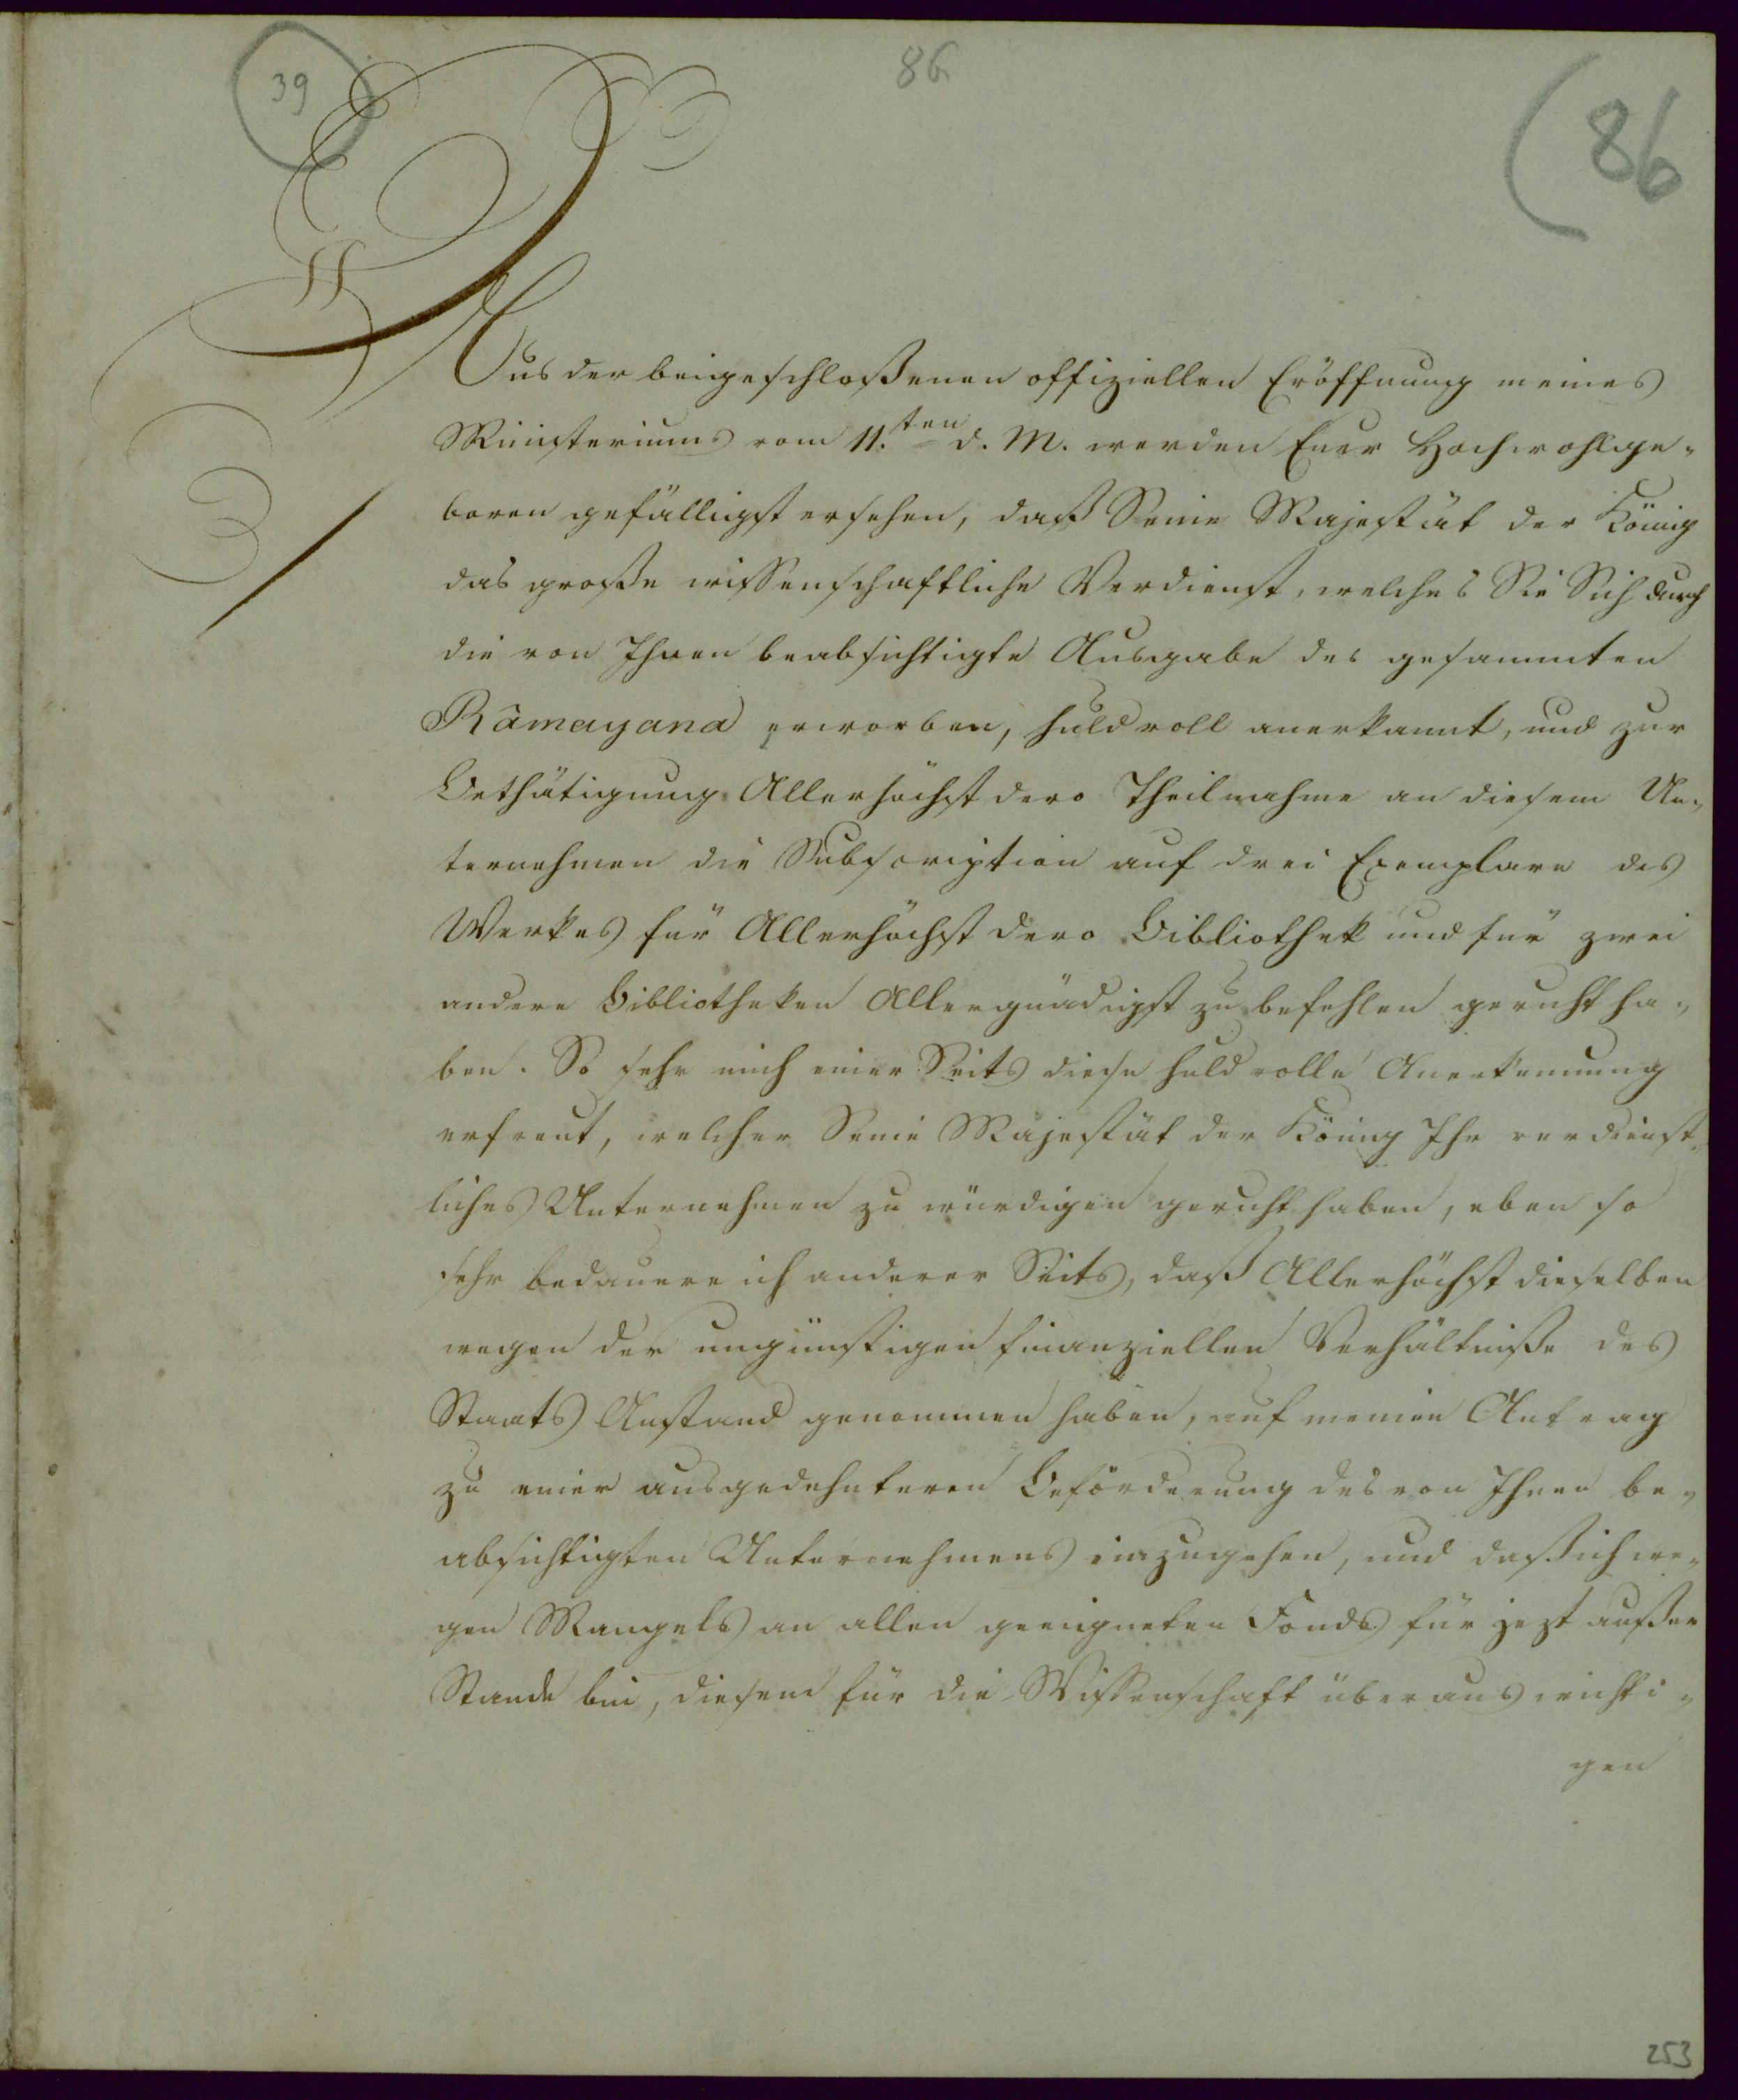 39
86
(86
Aus der beigeschloßenen offiziellen Eröffnung meines
Ministeriums vom 11.ten d. M. werden Euer Hochwohlge-
boren gefälligst ersehen, daß Seine Majestät der König
das große wissenschaftliche Verdienst, welches Sie Sich durch
die von Ihnen beabsichtigte Ausgabe des gesammten
Râmayana erworben, huldvoll anerkannt, und zur
Bethätigung Allerhöchst dero Theilnahme an diesem Un-
ternehmen die Subscription auf drei Exemplare des
Werkes für Allerhöchst dero Bibliothek und für zwei
andere Bibliotheken Allergnädigst zu befehlen geruht ha-
ben. So sehr mich einer Seits diese huldvolle Anerkennung
erfreut, welcher Seine Majestät der König Ihr verdienst-
liches Unternehmen zu würdigen geruht haben, eben so
sehr bedauere ich anderer Seits, daß Allerhöchst dieselben
wegen der ungünstigen finanziellen Verhältniße des
Staats Anstand genommen haben, auf meinen Antrag
zu einer ausgedehnteren Beförderung des von Ihnen be-
absichtigten Unternehmens einzugehen, und daß ich we-
gen Mangels an allen geeigneten Fonds für jezt außer
Stande bin, diesem für die Wissenschaft überaus wichti-
gen
253